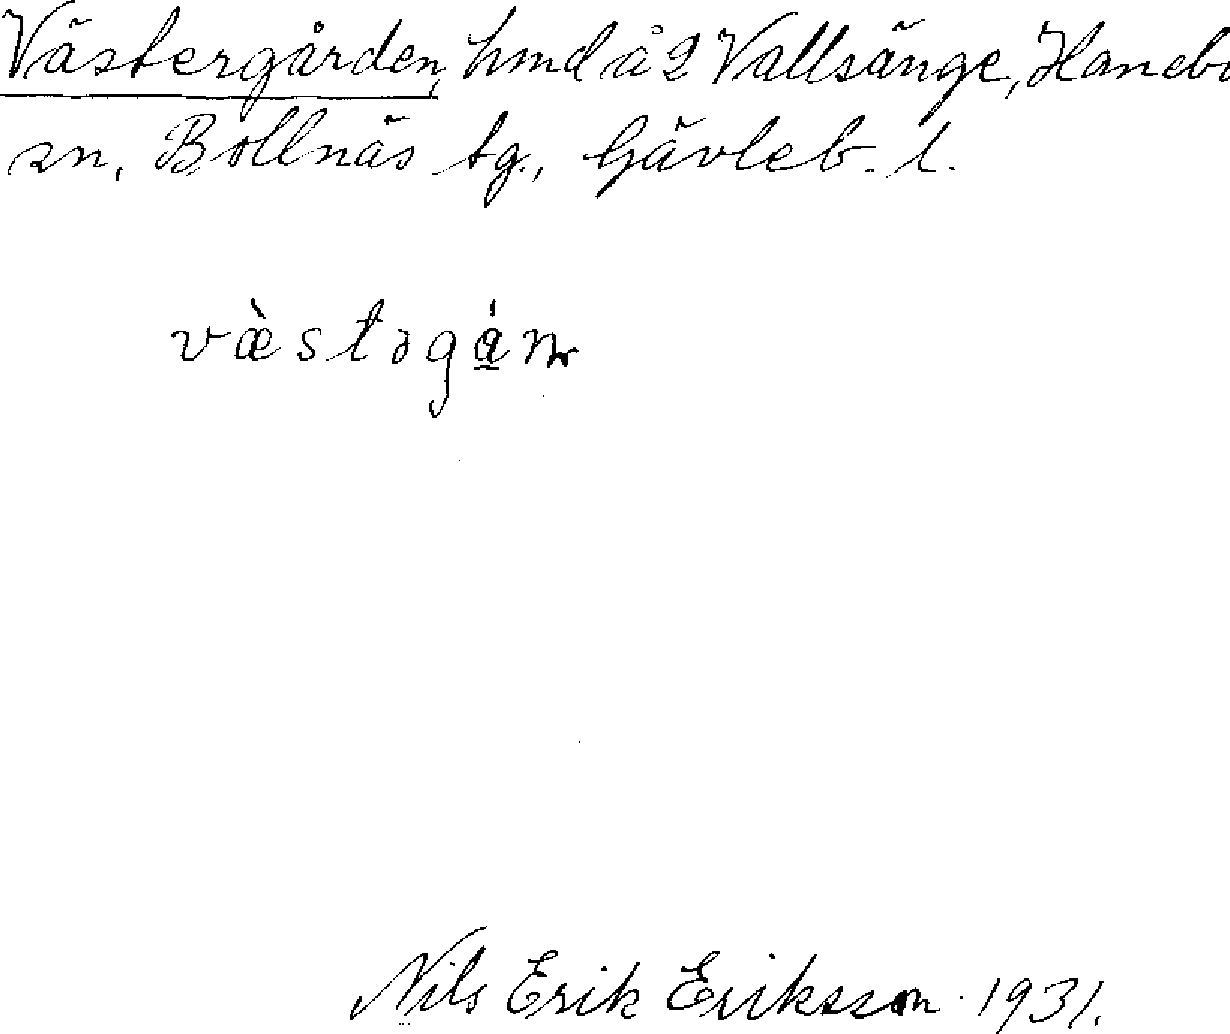 Västergården, hmd å 2 Vallsänge, Hanebo
sn, Bollnäs tg., Gävleb. l.
væ̀stəgá̱ɳ
Nils Erik Eriksson 1931.